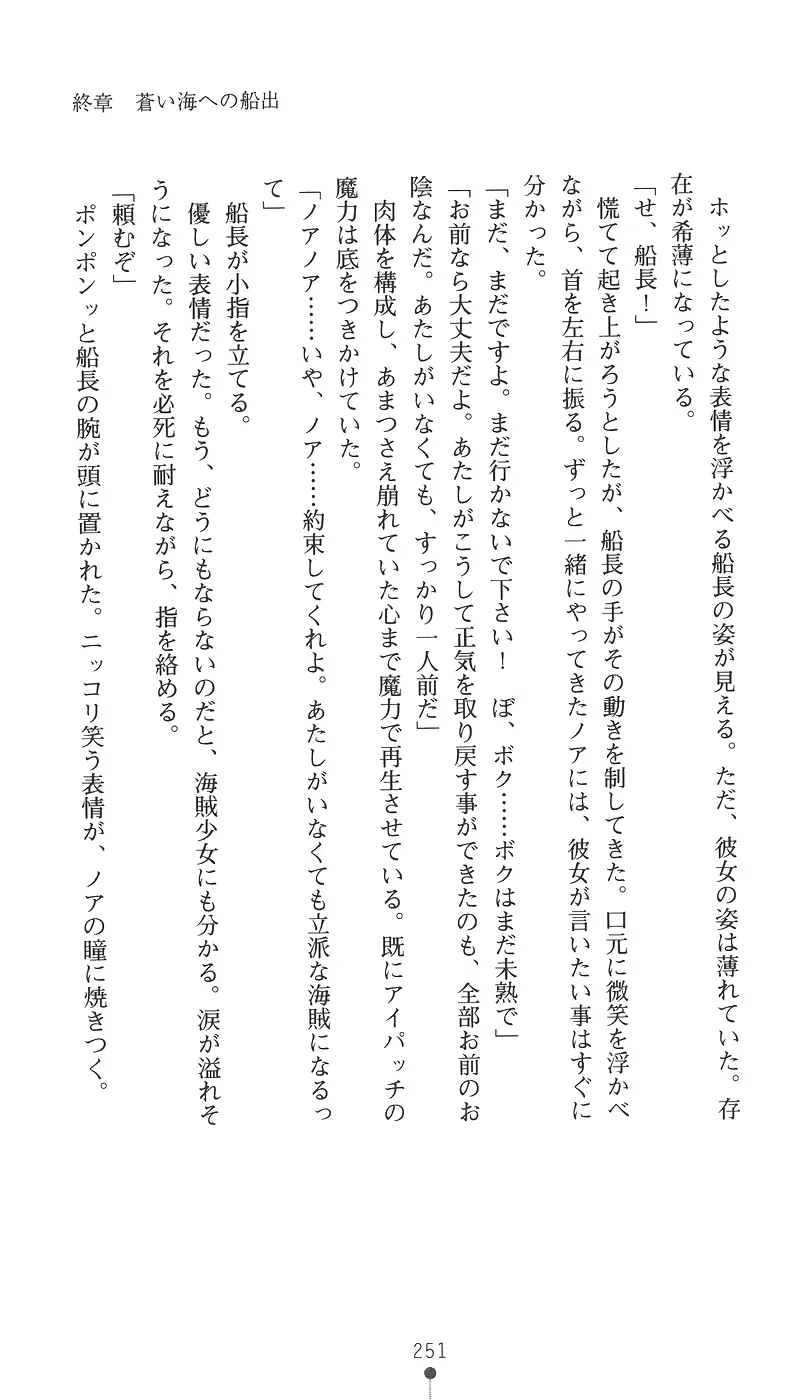 終章　蒼い海への船出
　ホッとしたような表情を浮かべる船長の姿が見える。ただ、彼女の姿は薄れていた。存
在が希薄になっている。
「せ、船長！」
　慌てて起き上がろうとしたが、船長の手がその動きを制してきた。口元に微笑を浮かべ
ながら、首を左右に振る。ずっと一緒にやってきたノアには、彼女が言いたい事はすぐに
分かった。
「まだ、まだですよ。まだ行かないで下さい！　ぼ、ボク……ボクはまだ未熟で」
「お前なら大丈夫だよ。あたしがこうして正気を取り戻す事ができたのも、全部お前のお
陰なんだ。あたしがいなくても、すっかり一人前だ」
　肉体を構成し、あまつさえ崩れていた心まで魔力で再生させている。既にアイパッチの
魔力は底をつきかけていた。
「ノアノア……いや、ノア……約束してくれよ。あたしがいなくても立派な海賊になるっ
て」
　船長が小指を立てる。
　優しい表情だった。もう、どうにもならないのだと、海賊少女にも分かる。涙が溢れそ
うになった。それを必死に耐えながら、指を絡める。
「頼むぞ」
　ポンポンッと船長の腕が頭に置かれた。ニッコリ笑う表情が、ノアの瞳に焼きつく。
251